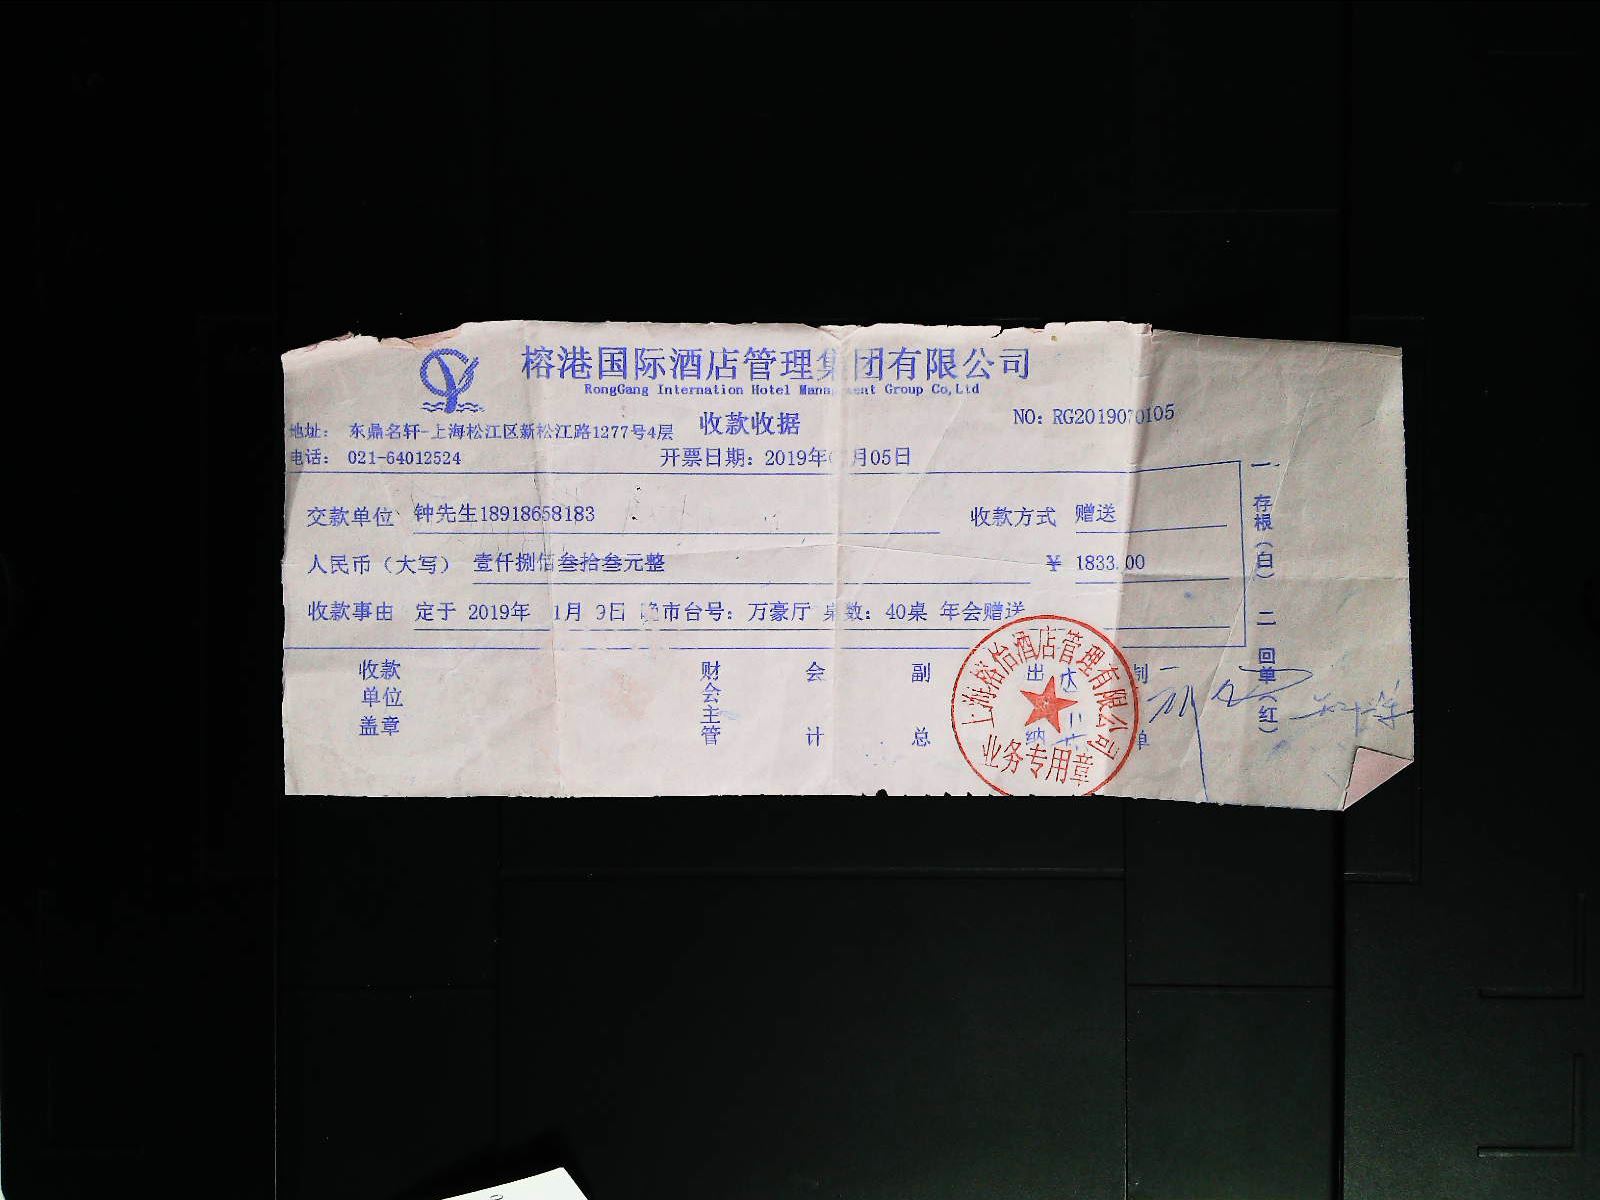 榕港国际酒店管理集团有限公司
RongGang Internation Hotel Management Group Co,Ltd
收款收据
NO: RG2019070105
地址: 东鼎名轩-上海松江区新松江路1277号4层
电话: 021-64012524
开票日期: 2019年 月05日
交款单位 钟先生18918658183 收款方式 赠送
人民币（大写） 壹仟捌佰叁拾叁元整 ¥ 1833.00
收款事由 定于 2019年 1月 9日 晚市台号: 万豪厅 桌数: 40桌 年会赠送
收款单位盖章
财会主管
会计
副总
出纳
制单
上海榕怡酒店管理有限公司
业务专用章
一 存根（白） 二 回单（红）